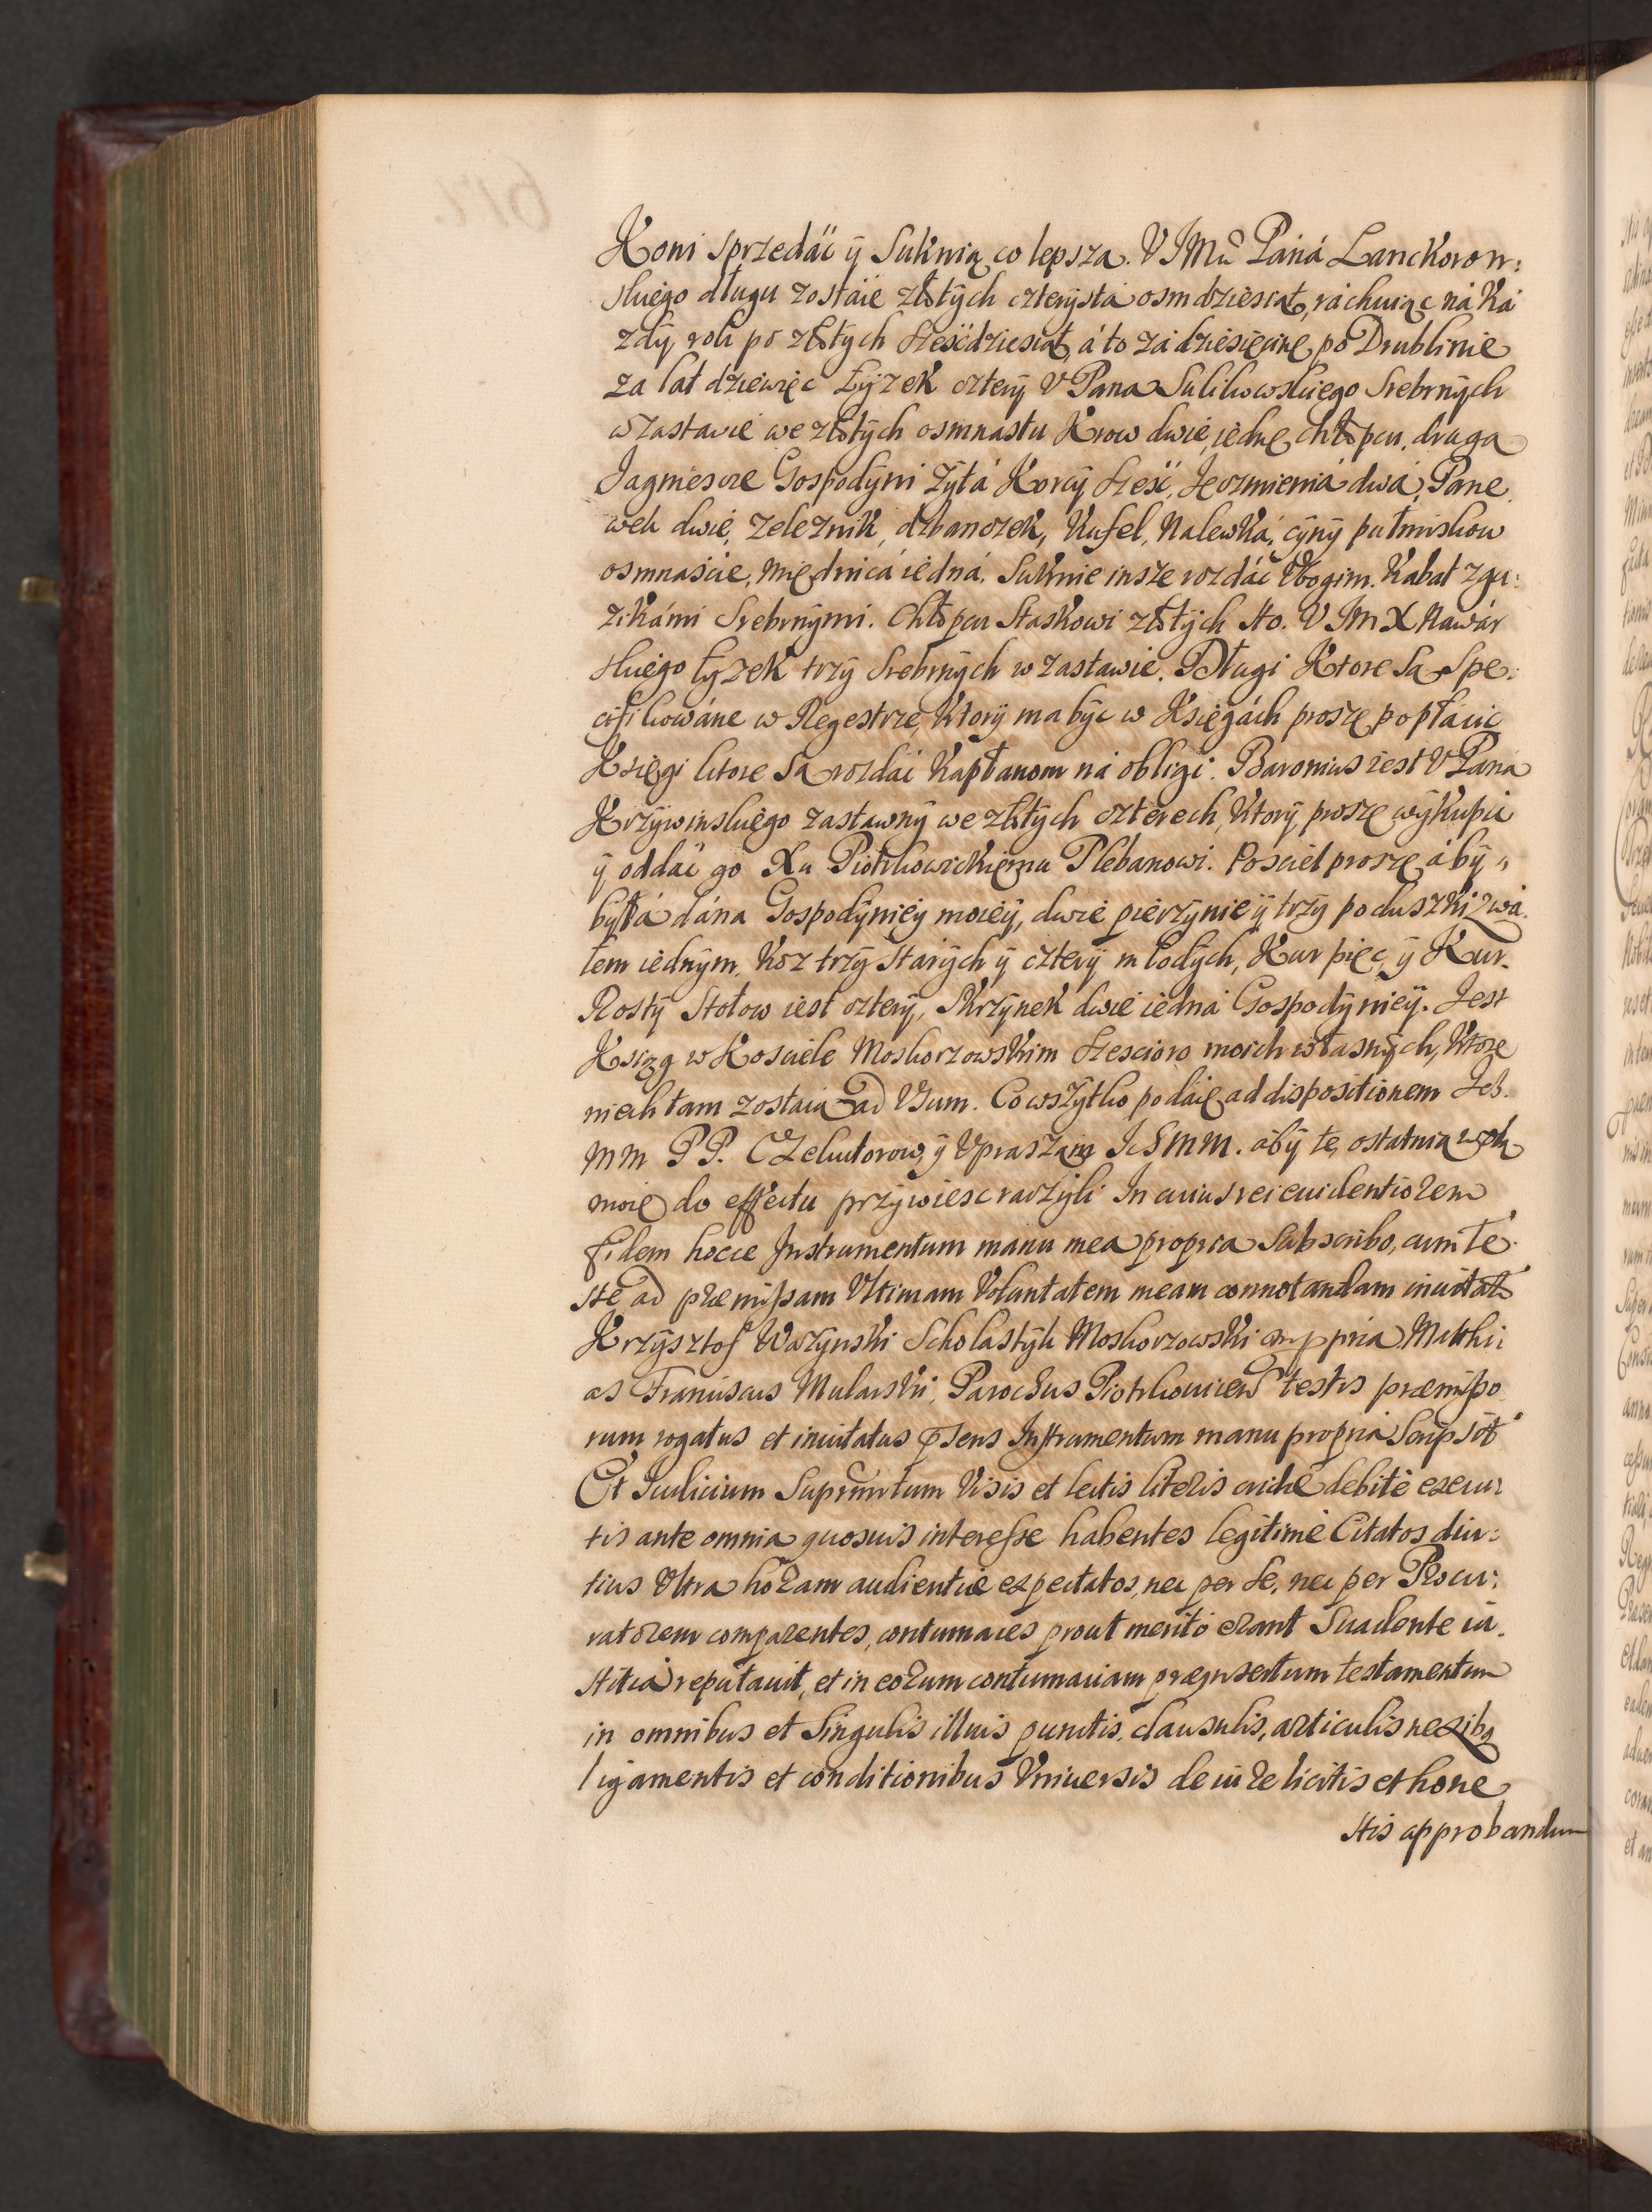 Koni sprzedáć ÿ Suknią co lepsza. V JMci Páná Lanckoron:
skiégo długu zostáie złotÿch czterÿstá osmdziesiąt, ráchuiąc ná Ká
zdÿ rok po złotÿch sześćdziesiąt, á to zá dziesięcinę po Drublinie
za lat dziewięc Łÿzek czterÿ V Pana Sulikowskiego Srebrnÿch
w zastawie we złotÿch osmnastu Krow dwie, iednę chłopcu, druga
Jagniesce Gospodÿni Zÿtá Korcÿ sześć, Jęczmieniá dwá, Pane
wek dwie, zeleznik, dzbanczek, Kufel, Nalewká, cÿnÿ pułmiskow
osmnaście, Międnicá iedná. Suknie insze rozdáć Vbogim. Kabat z gu:
zikámi Srebrnÿmi. Chłopcu Staskowi złotÿch sto. V JM X Nawár
skiégo łyzek trzÿ Srebrnÿch w zastawie. Długi Ktore Sa Spe:
cifikowáne w Regestrze, Ktorÿ ma bÿc w Księgách proszę popłácic
Księgi ktore Sa rozdác Kapłanom ná obligi. Baronius iest V Pána
Krzÿwinskiégo zastawnÿ we złotÿch czterech, Ktorÿ proszę wÿkupic
ÿ oddác go Xu Piotrkowickiemu Plebanowi. Posciel proszę ábÿ
bÿłá dána Gospodÿniéÿ moiéÿ, dwie pierzÿnie ÿ trzÿ poduszki z wá
łem iednÿm, Koz trzÿ starÿch ÿ czterÿ młodÿch, Kur pięc, ÿ Kur.
Rostÿ Stołow iest czterÿ, Skrzÿnek dwie iedná Gospodÿniéÿ. Jest
Ksiąg w Kosciele Moskorzowskim sześcioro moich własnÿch, Ktore
niech tam zostáią ad Vsum. Co wszÿtko podáię ad dispositionem Ich
MM PP. Exekutorow, ÿ Vpraszam IchMM. ábÿ tę ostatnią wolą
moię do effectu przÿwiesc raczÿli In cuius rei euidentiorem
fidem hocce Instrumentum manu mea propria Subscribo, cum te
ste ad præmissam Vltimam Voluntatem meam connotandam inuitato
Krzÿsztof Wazÿnski Scholastÿk Moskorzowski mppria Matthi
as Franciscus Mularski, Parochus Piotrkouicen testis præmisso
rum rogatus et inuitatus psens Instrumentum manu propria Scripsit
Et Iudicium Suprascriptum Visis et lectis literis eiche debitè execu
tis ante omnia quosuis interesse habentes legitimè Citatos diu:
tius Vltra horam audientiæ expectatos, nec per se, nec per Procu:
ratorem comparentes, contumaces prout meritò erant Suadente iu
stitia reputauit, et in eorum contumaciam præinsertum testamentum
in omnibus et Singulis illius punctis, clausulis, articulis nexibs
ligamentis et conditionibus Vniuersis de iure licitis et hone
stis approbandum